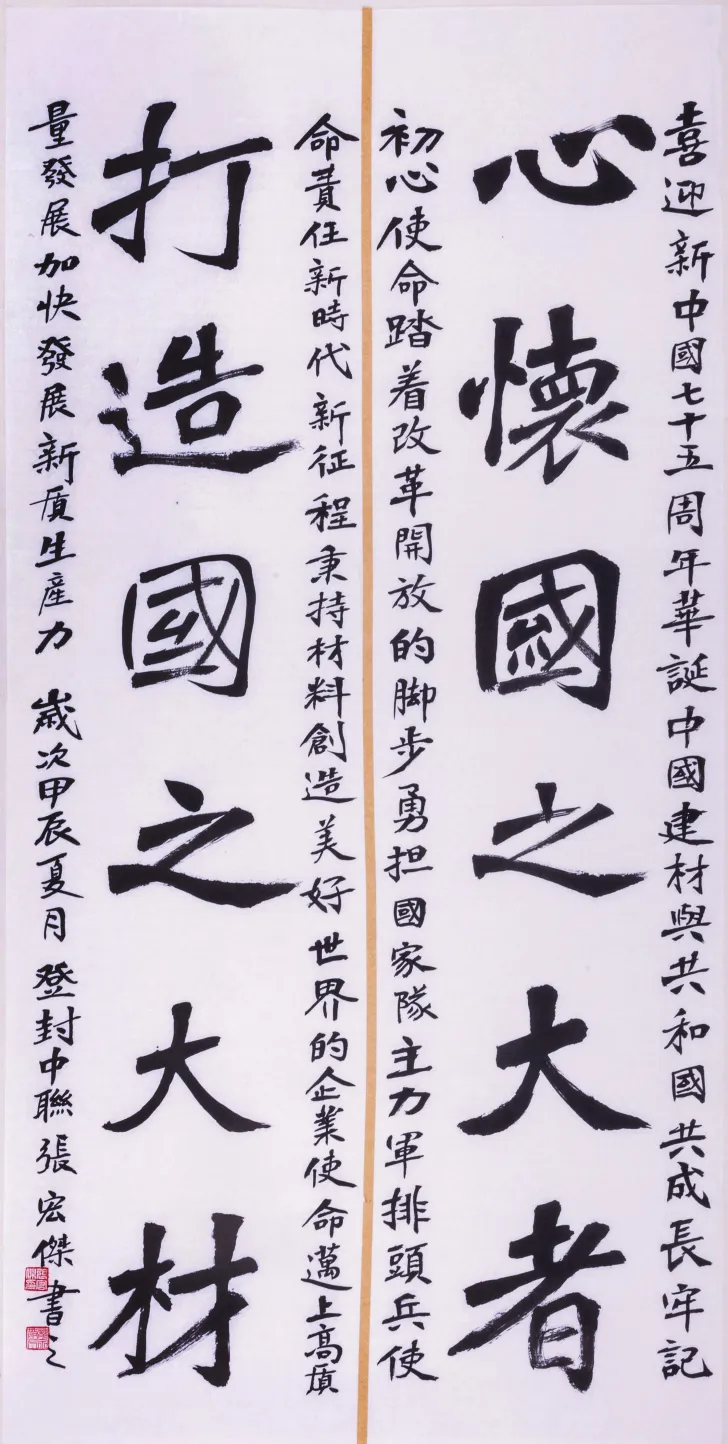 喜迎新中國七十五周年華誕中國建材與共和國共成長牢記
心懷國之大者
初心使命踏着改革開放的脚步勇担國家隊主力軍排頭兵使
命責任新時代新征程秉持材料創造美好世界的企業使命邁上高質
打造國之大材
量發展加快發展新質生產力 歲次甲辰夏月 登封中聯張宏傑書之